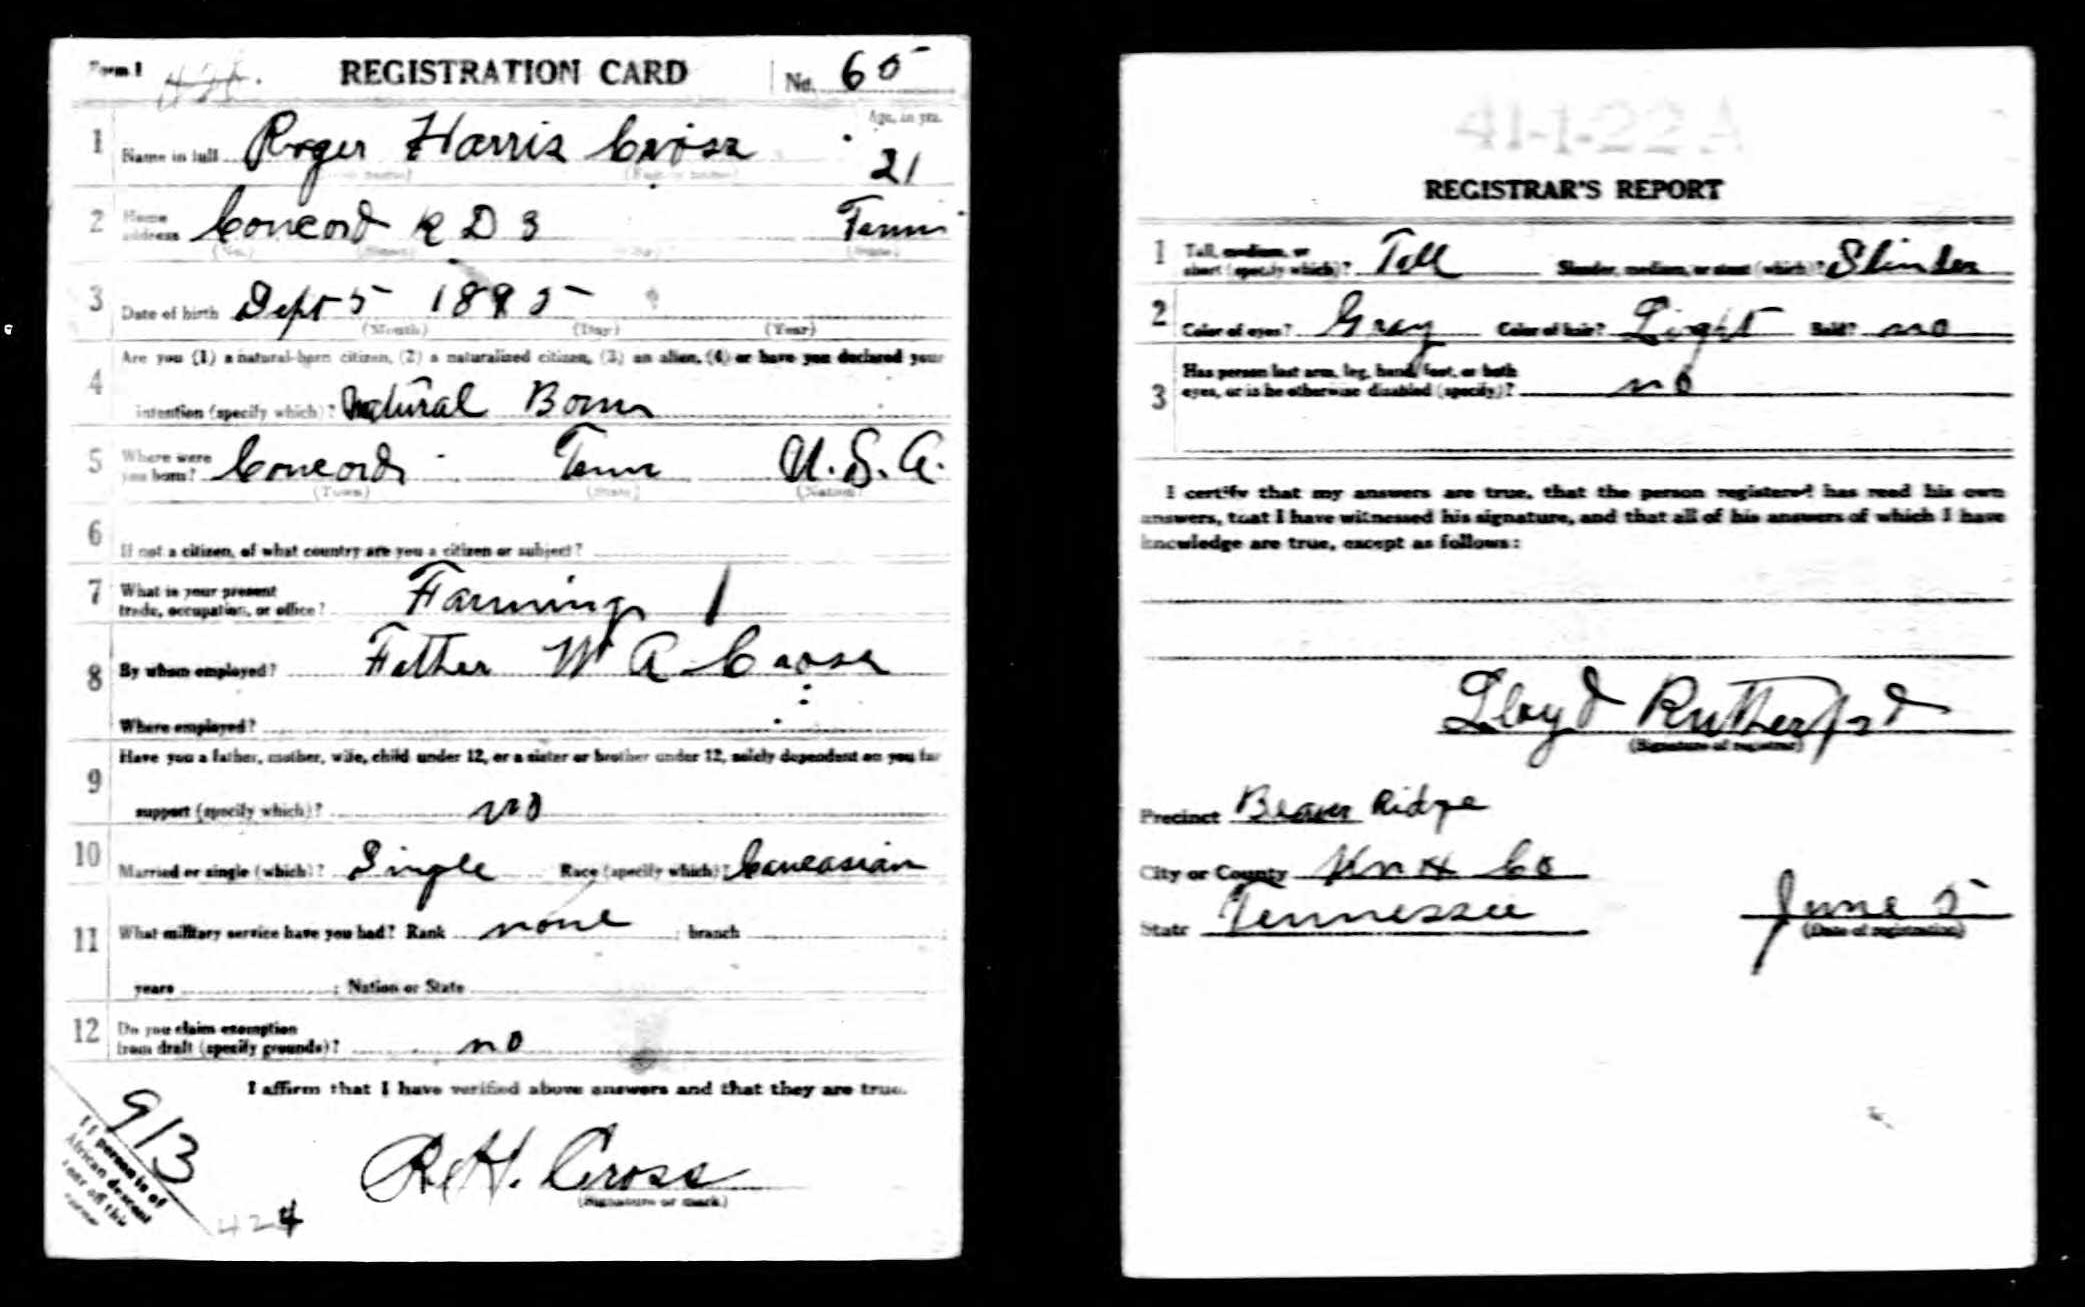 Form 1 REGISTRATION CARD No. 65
Age, in yrs.
1 Name in full Roger Harris Cross 21
2 Home address Concord R D 3 Tenn
(No.) (Street) (City) (State)
3 Date of birth Sept 5 1895
(Month) (Day) (Year)
4 Are you (1) a natural-born citizen, (2) a naturalized citizen, (3) an alien, (4) or have you declared your
intention (specify which)? Natural Born
5 Where were you born? Concord Tenn U.S.A.
(Town) (State) (Nation)
6 If not a citizen, of what country are you a citizen or subject?
7 What is your present trade, occupation, or office? Farming 1
8 By whom employed? Father W A Cross
Where employed?
9 Have you a father, mother, wife, child under 12, or a sister or brother under 12, solely dependent on you for
support (specify which)? no
10 Married or single (which)? Single Race (specify which)? Caucasian
11 What military service have you had? Rank none ; branch
years ; Nation or State
12 Do you claim exemption from draft (specify grounds)? no
I affirm that I have verified above answers and that they are true.
R.H. Cross
(Signature or mark)
913
If person is of
African descent
tear off this
corner
424
41-1-22A
REGISTRAR'S REPORT
1 Tall, medium, or short (specify which)? Tall Slender, medium, or stout (which)? Slinder
2 Color of eyes? Gray Color of hair? Light Bald? no
3 Has person lost arm, leg, hand, foot, or both
eyes, or is he otherwise disabled (specify)? no
I certify that my answers are true, that the person registered has read his own
answers, that I have witnessed his signature, and that all of his answers of which I have
knowledge are true, except as follows:
Lloyd Rutherford
(Signature of registrar)
Precinct Beaver Ridge
City or County Knox Co
State Tennessee June 5
(Date of registration)